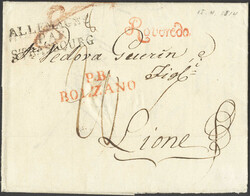 15. 4. 1814
ALLEMAGNE
Roveredo
STRASBOURG
Vedova Guerin
Figli
P.B.
BOLZANO
Lione